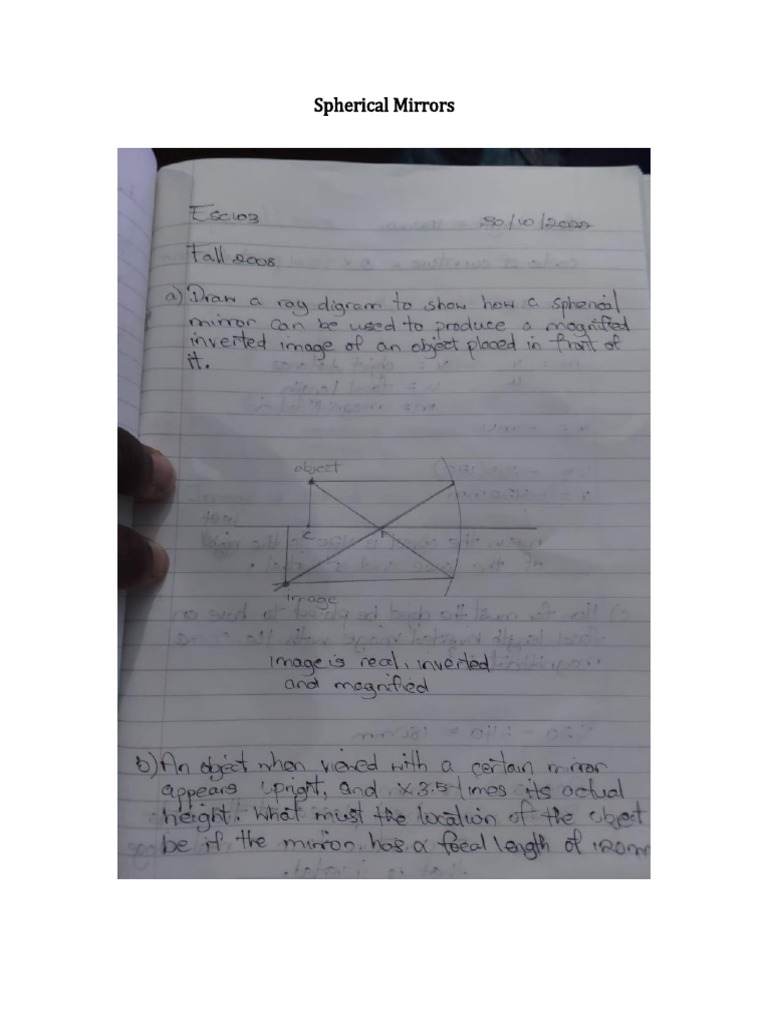 Spherical Mirrors
ESC103
30/10/2022
Fall 2008
a) Draw a ray digram to show how a spherical
mirror can be used to produce a magnified
inverted image of an object placed in front of
it.
object
C
F
image
Image is real, inverted
and magnified
b) An object when viewed with a certain mirror
appears upright, and x3.5 times its actual
height. What must the location of the object
be if the mirror has a focal length of 120m